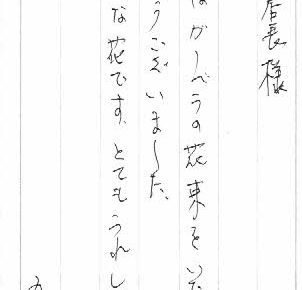 店長様
はガーベラの花束をいた
うございました。
な花です。とてもうれし